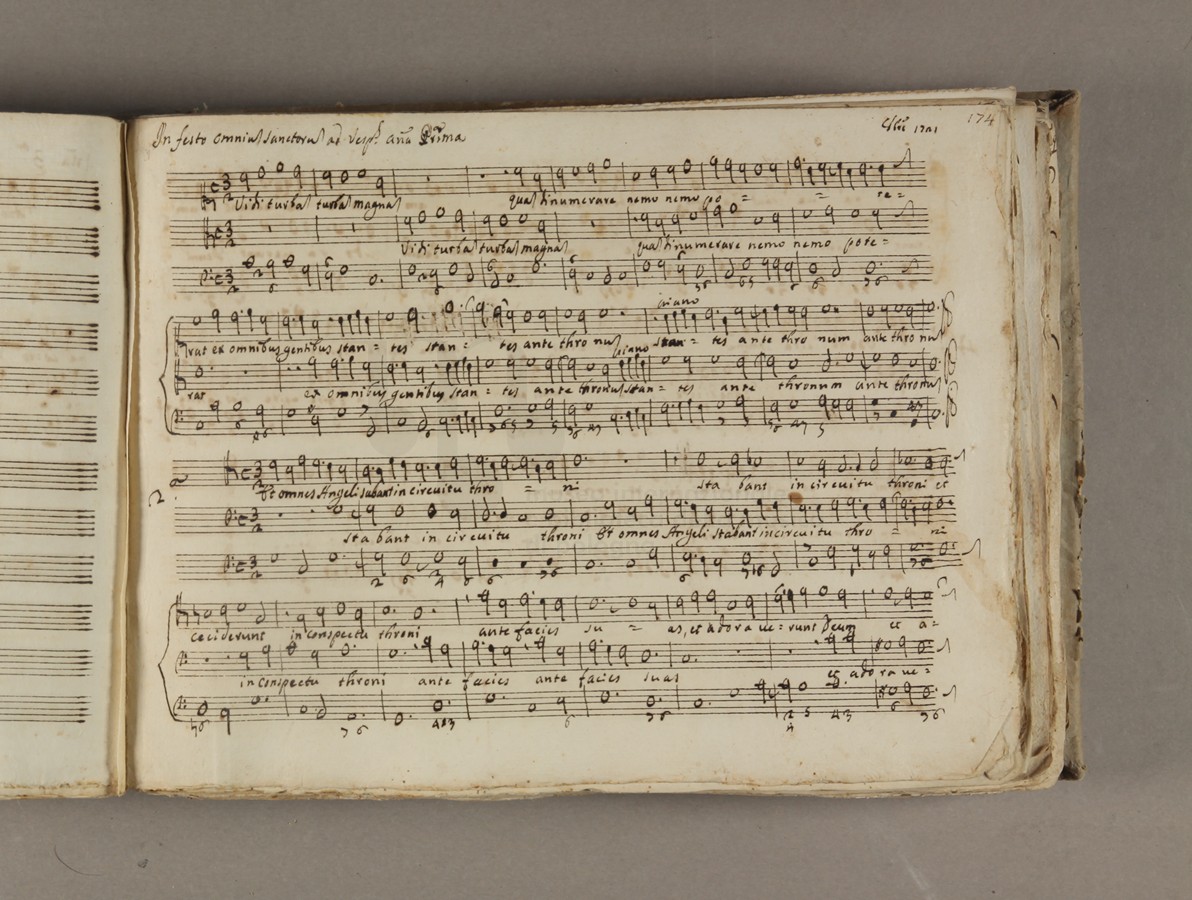 In festo omniu Sanctoru ad Vesp. Ana Prima
1721
174
Vidi turba turba magna qua dinumerare nemo nemo po = = te =
Vidi turba turba magna qua dinumerare nemo nemo pote =
piano
rat ex omnibus gentibus stan = tes stan = tes ante thronu stan = tes ante thronum ante thronu
piano
rat ex omnibus gentibus stan = tes ante thronu stan = tes ante thronum ante thronu
2 a
Et omnes Angeli stabant in circuitu thro = ni sta bant in circuitu throni et
stabant in circuitu throni Et omnes Angeli stabant in circuitu thro = ni
ceciderunt in conspectu throni ante facies su = as, et adorave = runt Deum et a =
in conspectu throni ante facies ante facies suas et adorave =